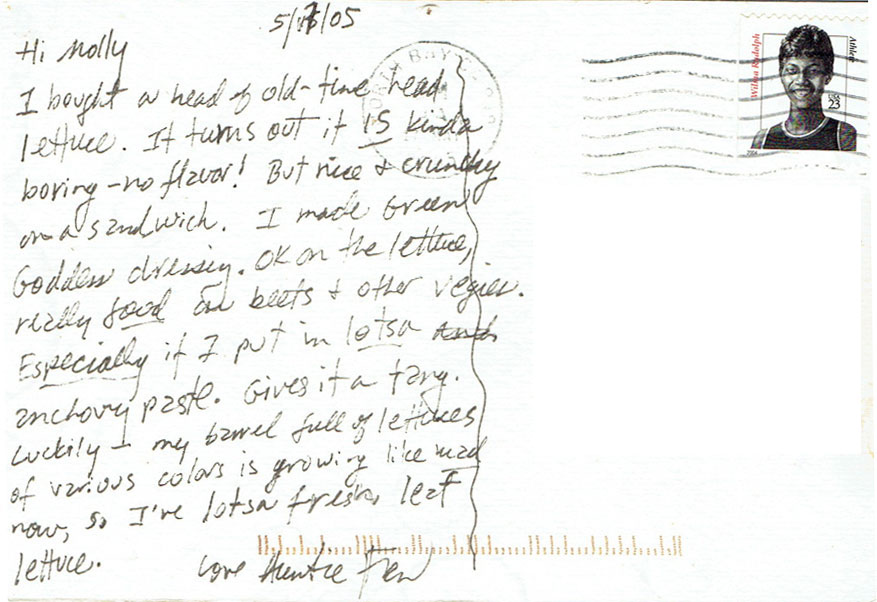 Hi Molly
I bought a head of old-time head
lettuce. It turns out it IS kinda
boring - no flavor! But nice & crunchy
on a sandwich. I made Green
Goddess dressing. OK on the lettuce,
really good on beets & other vegies.
Especially if I put in lotsa
anchovy paste. Gives it a tang.
Luckily - my barrel full of lettuces
of various colors is growing like mad
now, so I've lotsa fresh leaf
lettuce.
Love Auntie
NORTH BAY
Wilma Rudolph
Athlete
USA
23
2004